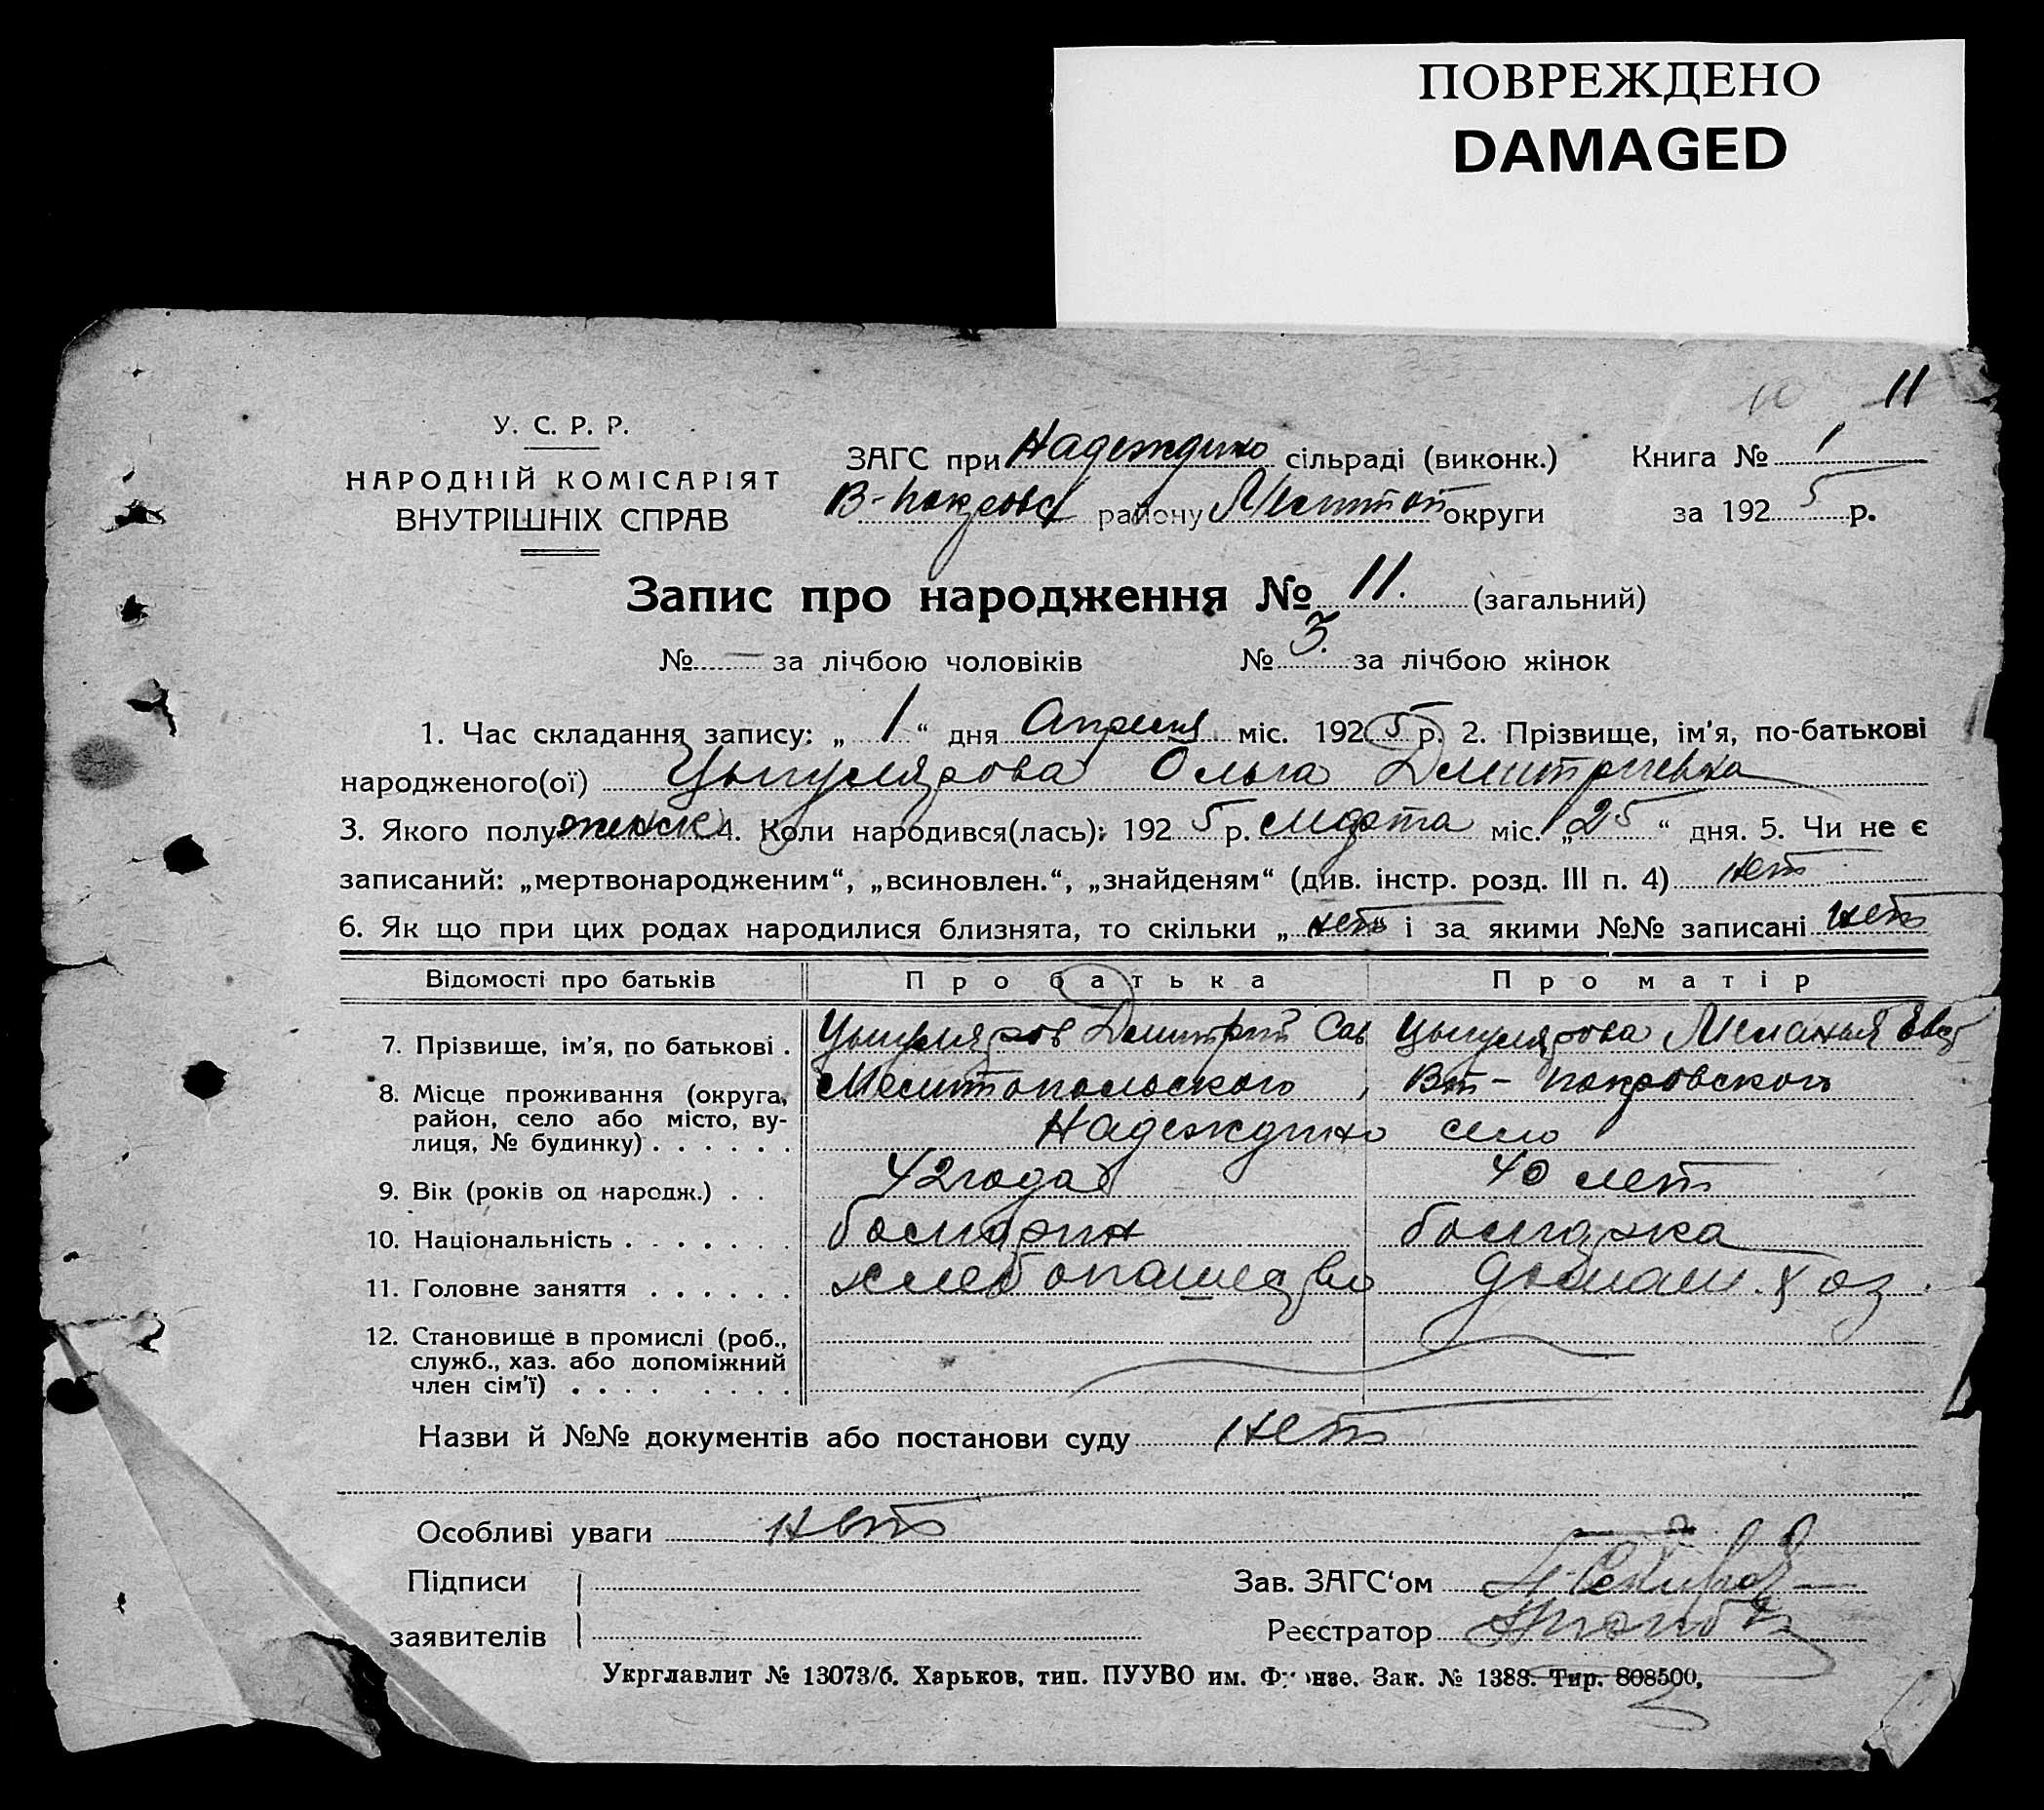 ПОВРЕЖДЕНО
DAMAGED
10 11
У. С. Р. Р.
НАРОДНІЙ КОМІСАРІЯТ
ВНУТРІШНІХ СПРАВ
ЗАГС при Надеждино сільраді (виконк.) Книга № 1
В-Покровс району Мелитоп округи за 1925 р.
Запис про народження № 11. (загальний)
№ — за лічбою чоловіків № 3. за лічбою жінок
1. Час складання запису: „1“ дня Апреля міс. 1925 р. 2. Прізвище, ім'я, по-батькові
народженого(ої) Цыгулярова Ольга Дмитриевна
3. Якого полу женск 4. Коли народився(лась): 1925 р. марта міс. „25“ дня. 5. Чи не є
записаний: „мертвонародженим“, „всиновлен.“, „знайденям“ (див. інстр. розд. III п. 4) нет
6. Як що при цих родах народилися близнята, то скільки „нет“ і за якими №№ записані нет
Відомості про батьків Про батька Про матір
7. Прізвище, ім'я, по батькові . Цыгуляров Дмитрий Сав Цыгулярова Меланья Евд
8. Місце проживання (округа, Мелитопольского, Вт-Покровского
район, село або місто, ву-
лиця, № будинку) . . . . . . Надеждино село
9. Вік (років од народж.) . . 42 года 40 лет
10. Національність . . . . . . . болгарин болгарка
11. Головне заняття . . . . . . хлебопашество домаш. хоз.
12. Становище в промислі (роб.,
служб., хаз. або допоміжний
член сім'ї) . . . . . . . .
Назви й №№ документів або постанови суду нет
Особливі уваги нет
Підписи
заявителів
Зав. ЗАГС‘ом
Реєстратор
Укрглавлит № 13073/б. Харьков, тип. ПУУВО им. Фрунзе. Зак. № 1388. Тир. 808500.